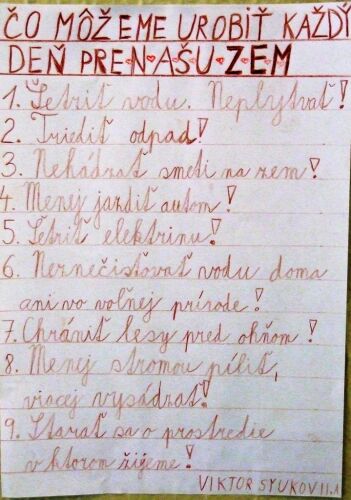 ČO MÔŽEME UROBIŤ KAŽDÝ
DEŇ PRE NAŠU ZEM
1. Šetriť vodu. Neplytvať!
2. Triediť odpad!
3. Nehádzať smeti na zem!
4. Menej jazdiť autom!
5. Šetriť elektrinu!
6. Neznečisťovať vodu doma
ani vo voľnej prírode!
7. Chrániť lesy pred ohňom!
8. Menej stromou píliť,
viacej vysádzať!
9. Starať sa o prostredie
v ktorom žijeme!
VIKTOR